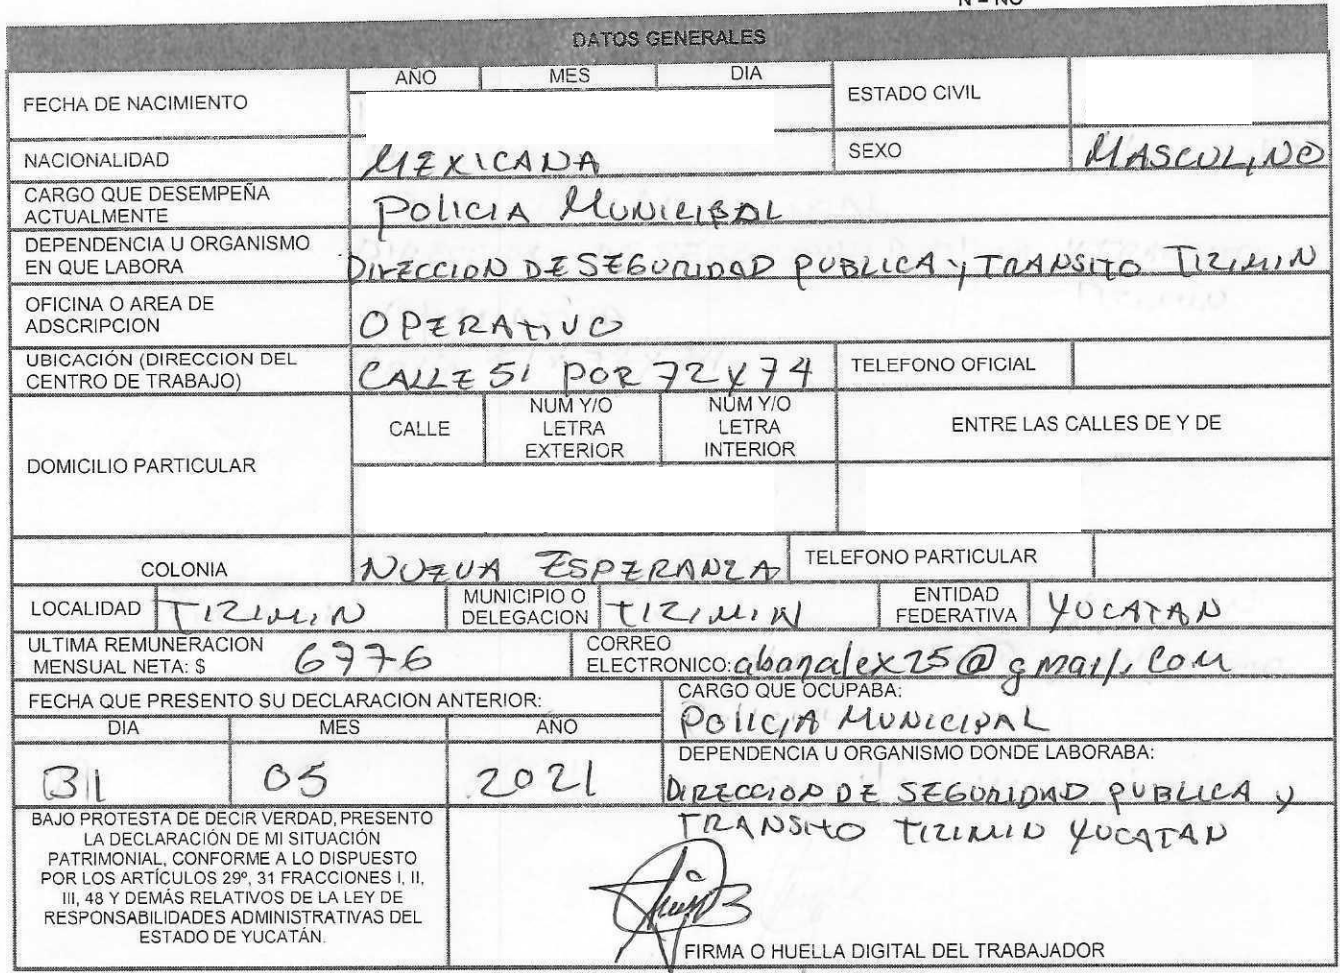 DATOS GENERALES
FECHA DE NACIMIENTO
AÑO MES DIA
ESTADO CIVIL
NACIONALIDAD MEXICANA SEXO MASCULINO
CARGO QUE DESEMPEÑA
ACTUALMENTE
POLICIA MUNICIPAL
DEPENDENCIA U ORGANISMO
EN QUE LABORA
DIRECCION DE SEGURIDAD PUBLICA Y TRANSITO TIZIMIN
OFICINA O AREA DE
ADSCRIPCION
OPERATIVO
UBICACIÓN (DIRECCION DEL
CENTRO DE TRABAJO)
CALLE 51 POR 72 Y 74
TELEFONO OFICIAL
DOMICILIO PARTICULAR
CALLE
NUM Y/O
LETRA
EXTERIOR
NUM Y/O
LETRA
INTERIOR
ENTRE LAS CALLES DE Y DE
COLONIA NUEVA ESPERANZA TELEFONO PARTICULAR
LOCALIDAD TIZIMIN
MUNICIPIO O
DELEGACION
TIZIMIN
ENTIDAD
FEDERATIVA
YUCATAN
ULTIMA REMUNERACION
MENSUAL NETA: $ 6776
CORREO
ELECTRONICO: abanalex25@gmail.com
FECHA QUE PRESENTO SU DECLARACION ANTERIOR:
DIA MES AÑO
31 05 2021
CARGO QUE OCUPABA:
POLICIA MUNICIPAL
DEPENDENCIA U ORGANISMO DONDE LABORABA:
DIRECCION DE SEGURIDAD PUBLICA Y
TRANSITO TIZIMIN YUCATAN
BAJO PROTESTA DE DECIR VERDAD, PRESENTO
LA DECLARACIÓN DE MI SITUACIÓN
PATRIMONIAL, CONFORME A LO DISPUESTO
POR LOS ARTÍCULOS 29º, 31 FRACCIONES I, II,
III, 48 Y DEMÁS RELATIVOS DE LA LEY DE
RESPONSABILIDADES ADMINISTRATIVAS DEL
ESTADO DE YUCATÁN.
FIRMA O HUELLA DIGITAL DEL TRABAJADOR